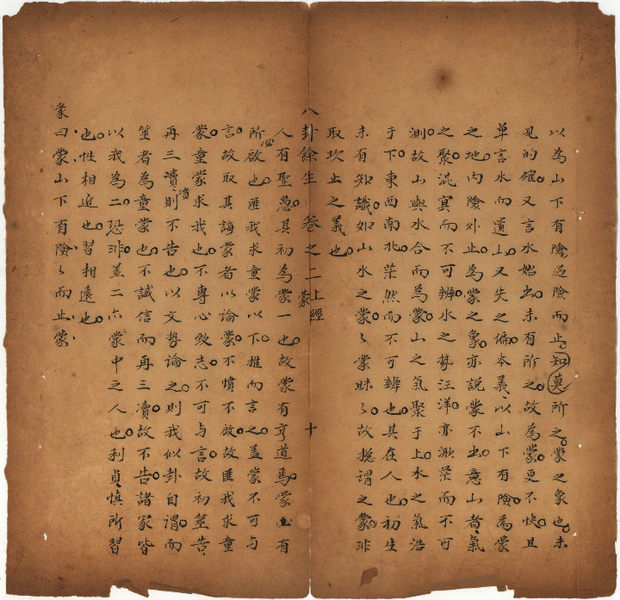 以為山下有險遇險而止知莫所之蒙之象也未
見的確又言水始出未有所之故為蒙更不快且
單言水而遺山又失之偏本義以山下有險為蒙
之地內險外止為蒙之象亦說蒙不出意山者氣
之聚混冥而不可辨水之勢汪洋亦渺茫而不可
測故山與水合而為蒙山之氣聚于上水之氣浩
于下東西南北茫然而不可辨也其在人也初生
未有知識如山水之蒙蒙昧故總謂之蒙非
取坎止之義也
八卦餘生 卷之二 上經 蒙 十
人有聖愚其初為蒙一也故蒙有亨道焉蒙必有
所欲也匪我求童蒙以下推而言之蓋蒙不可與
言故取其誨蒙者以論蒙不憤不啟故匪我求童
蒙童蒙求我也不專心致志不可與言故初筮告
再三瀆瀆則不告也以文勢論之則我似卦自謂而
筮者為童蒙也不誠信而再三瀆故不告諸家皆
以我為二恐非蓋二亦蒙中之人也利貞慎所習
也性相近也習相遠也
彖曰蒙山下有險險而止蒙